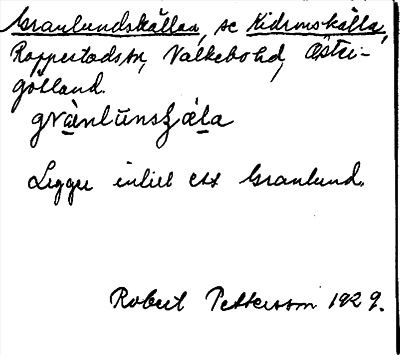 Granlundskällan, se Kidrunskälla,
Rappestads sn, Valkebo hd, Öster-
götland.
grànlūnsʒæ̀la
Ligger intill ett Granlund.
Robert Pettersson 1929.